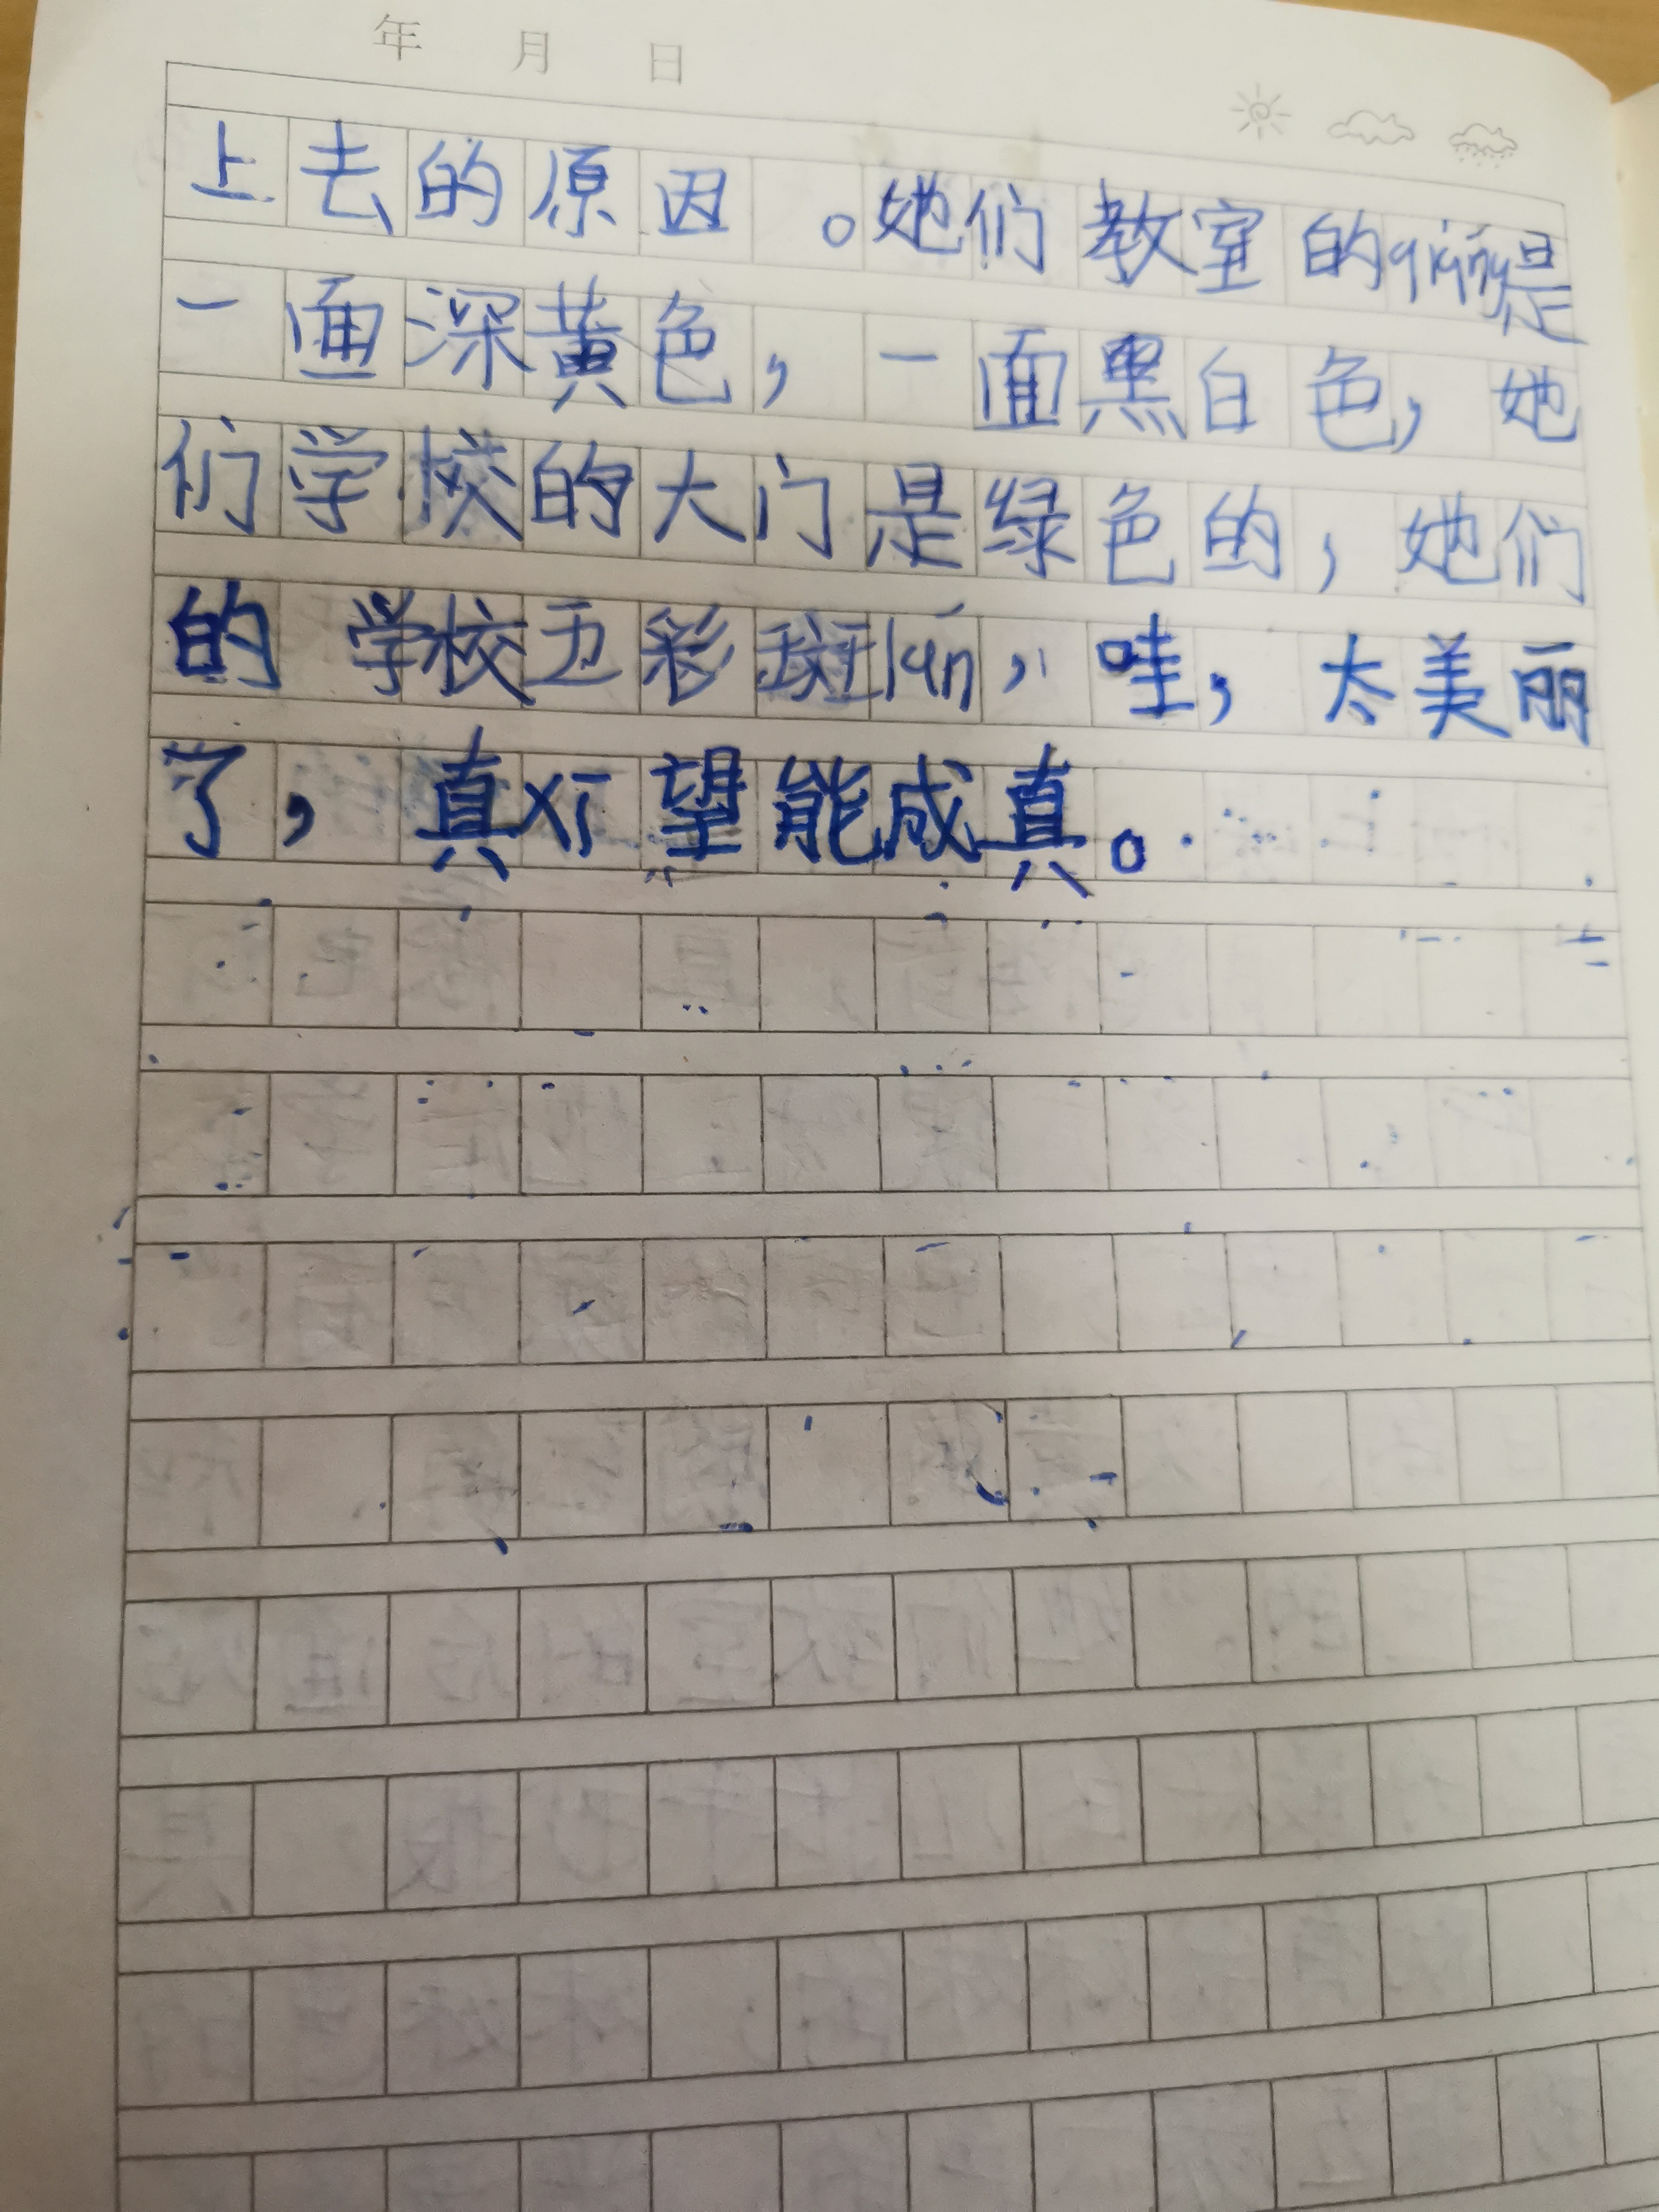 年 月 日
上去的原因。她们教室的qiáng是
一面深黄色，一面黑白色，她
们学校的大门是绿色的，她们
的学校五彩斑lán，哇，太美丽
了，真xī望能成真。